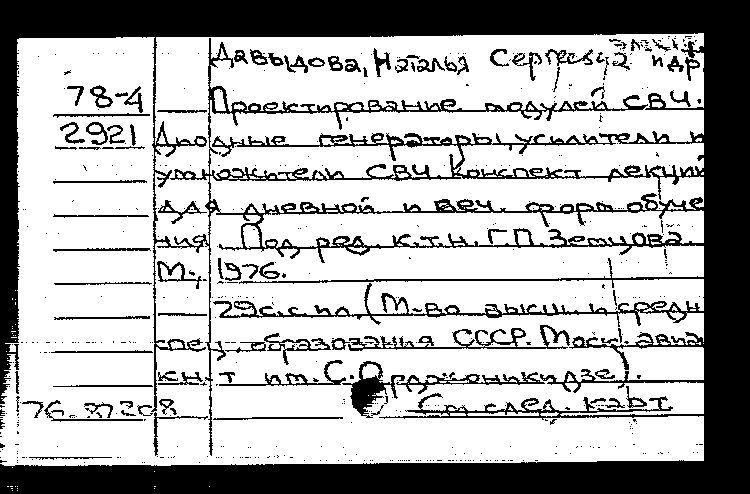 Давыдова, Наталья Сергеевна и др.
78-4 Проектирование модулей СВЧ.
2921 Диодные генераторы, усилители и
умножители СВЧ. Конспект лекций
для дневной и веч. форм обуче
ния. Под ред. к.т.н. Г.П. Земцова.
М., 1976.
29с. с ил. (М-во высш. и средн
спец. образования СССР. Моск. авиа
ин-т им. С. Орджоникидзе).
76.87208 См. след. карт.